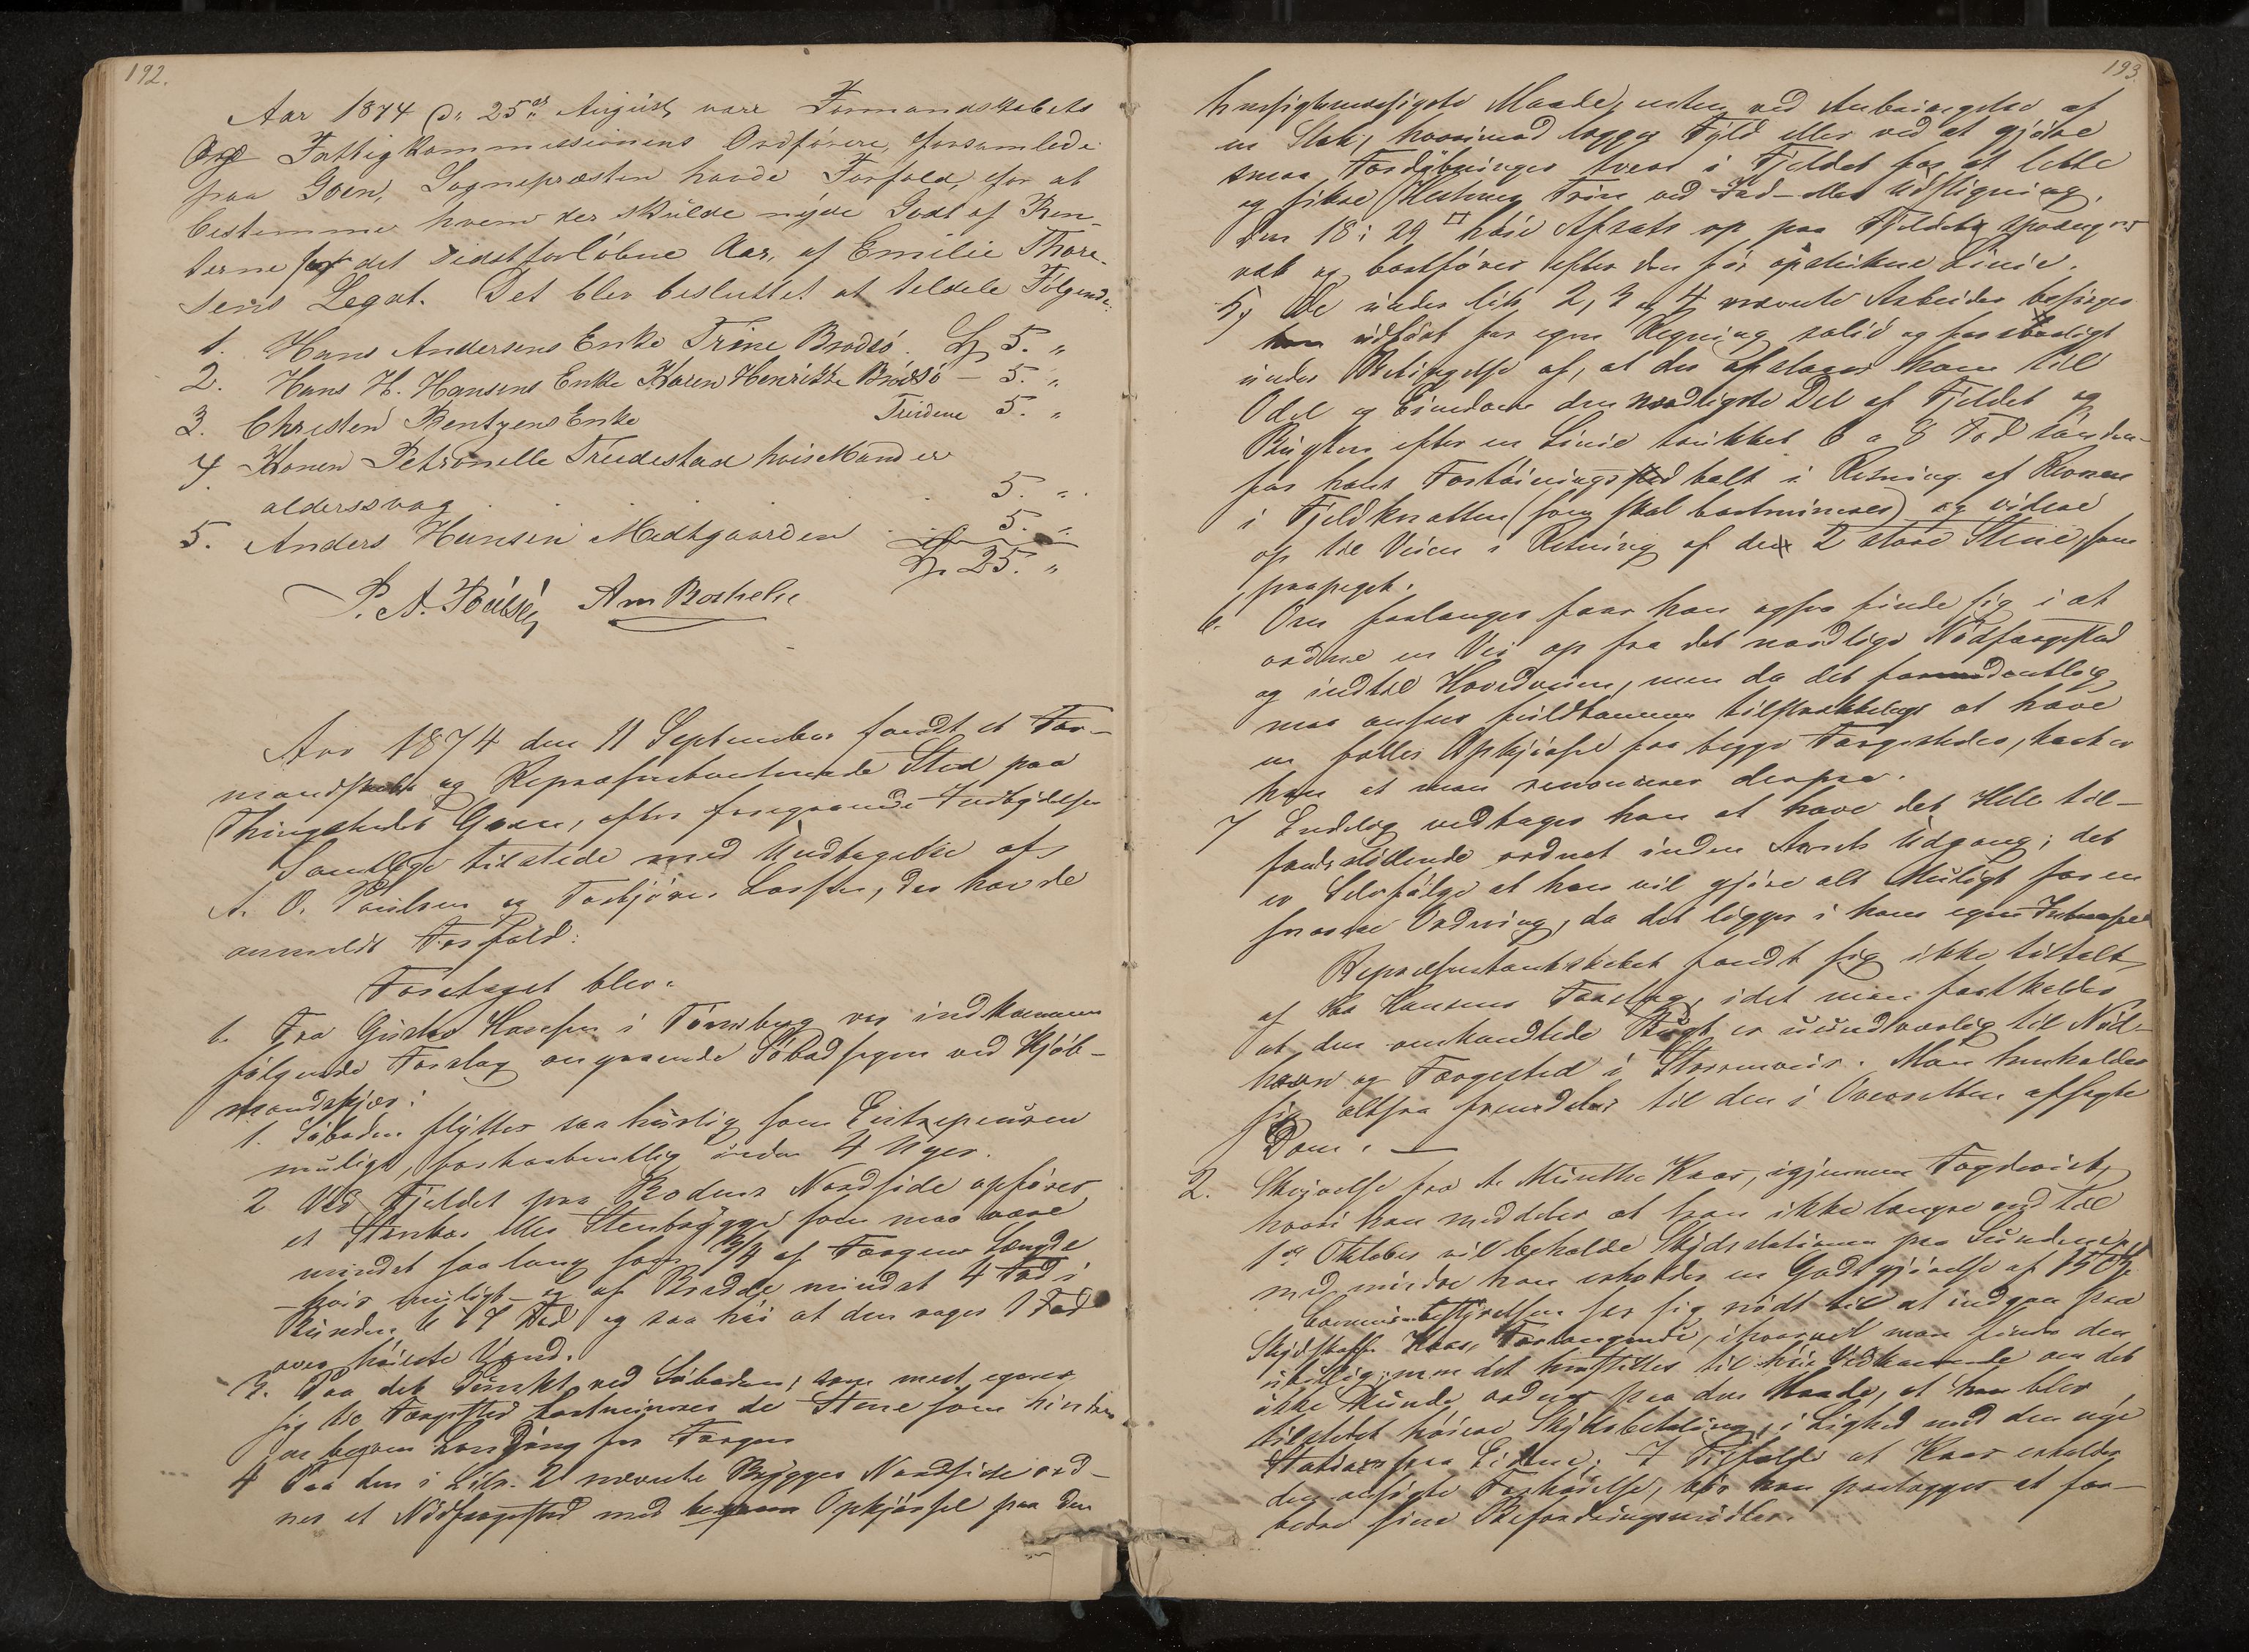 192.
Aar 1874 d. 25de August vare Formandskabets
og Fattigkommissionens Ordførere forsamlede
paa Goen, Sognepræsten havde Forfald, for at
bestemme hvem der skulde nyde Godt af Ren-
terne for det sidstforløbne Aar, af Emilie Thore-
sens Legat. Det blev besluttet at tildele Følgende:
1. Hans Andersens Enke Trine Brodsø Sp 5. "
2. Hans H. Hansens Enke Karen Henrikke Brodsø – 5. "
3. Christen Bentzens Enke 5. "
4. Konen Petronelle Truidestad hvis Mand er
alderssvag 5. "
5. Anders Hansen Midtgaarden 5. "
Sp 25. "
P. A.
Aar 1874 den 11 September fandt et For-
mandskabs og Repræsentantmøde Sted paa
Thingstedet Goen, efter foregaaende Indbydelse
Samtlige tilstede med Undtagelse af
A. O. Paulsen og Torbjørn Larsen, der havde
anmeldt Forfald:
Foretaget blev:
1. Fra Gustav Hansen i Tønsberg var indkommen
følgende Forslag angaaende Søbodsagen ved Kjøb-
mandskjær:
1. Søboden flyttes saa hurtig som Entrepenøren
muligt, forhaabentlig inden 4 Uger.
2 Ved Fjeldet paa Bodens Nordside opføres
et Stenkar eller Stenbrygge som maa være
mindst saa lang som 3/4 af Færgens Længde
– hvis muligt – og af Bredde mindst 4 Fod i
Bunden 6 à 7 Fod og saa høi at den rager 1 Fod
over høieste Vand.
3. Paa det Punkt ved Søboden, som mest egner
sig til Færgested bortmineres de Stene som hindrer
en beqvem Landgang for Færgen
4 Paa den i Litr. 2 nævnte Brygges Nordside ord-
nes et Nødfærgested med beqvem Opkjørsel paa den
193.
hensigtsmæssigste Maade, enten ved Anbringelse af
en Stok, hvorimod lægges Fyld eller ved at gjøre
smaa Fordybninger tvers i Fjeldet for at lette
og sikre Hestenes Trin ved Ind- eller Udstigning.
Den 18 : 24 " høie Afsats op paa Fjeldet sprænges
væk og bortføres efter den før opstukne Linie.
5, De under litr 2, 3 og 4 nævnte Arbeider besørges
udført for egen Regning solid og forsvarligt
under Betingelse af, at der afstaaes ham til
Odel og Eiendom den nordligste Del af Fjeldet og
Bugten efter en Linie trukket 6 a 8 Fod
for hans Fortøiningsbolt i Retning af Kronen
i Fjeldknatten (som skal bortmineres) og videre
op til Veien i Retning af de 2 store Stene, som
paapeget.
6. Om forlanges faar han ogsaa finde sig i at
ordne en Vei op fra det nordlige Nødfærgested
og indtil Hovedveien, men da det formodentlig
maa ansees fuldkommen tilstrækkeligt at have
en fælles Opkjørsel fra begge Færgesteder, haaber
han at man renoncerer derpaa.
7 Endelig vedtager han at have det Hele til-
fredsstillende ordnet inden Aarets Udgang; det
er Selvfølge at han vil gjøre alt Muligt for en
snarere Ordning, da det ligger i hans egen Interesse
Repræsentantskabet fandt sig ikke tiltalt
af Hansens Forslag, idet man fastholder
at den omhandlede Bugt er uundværlig til Nød-
havn og Færgested i Stormveir. Man henholder
sig altsaa fremdeles til den i Overretten afsagte
Dom. —
2. Skrivelse fra A. Munthe Kaas, igjennem Fogderiet,
hvori han meddeler at han ikke længre end til
1ste Oktober vil beholde Skydsstationen paa Sundene
med mindre han erholder en Godtgjørelse af 150 Sp
Communebestyrelsen ser sig nødt til at indgaa paa
Skydsskaffer Kaas, Forlangende, ihvorvel man finder den
ubillig; men det henstilles til høie Vedkommende om det
ikke kunde ordnes paa den Maade, at han blev
tilstaaet høiere Skydsbetaling, i Lighed med den nye
Station paa Eidene; I Tilfælde at Kaas erholder
den ansøgte Forhøielse, bør han paalægges at for-
bedre sine Befordringsmidler.